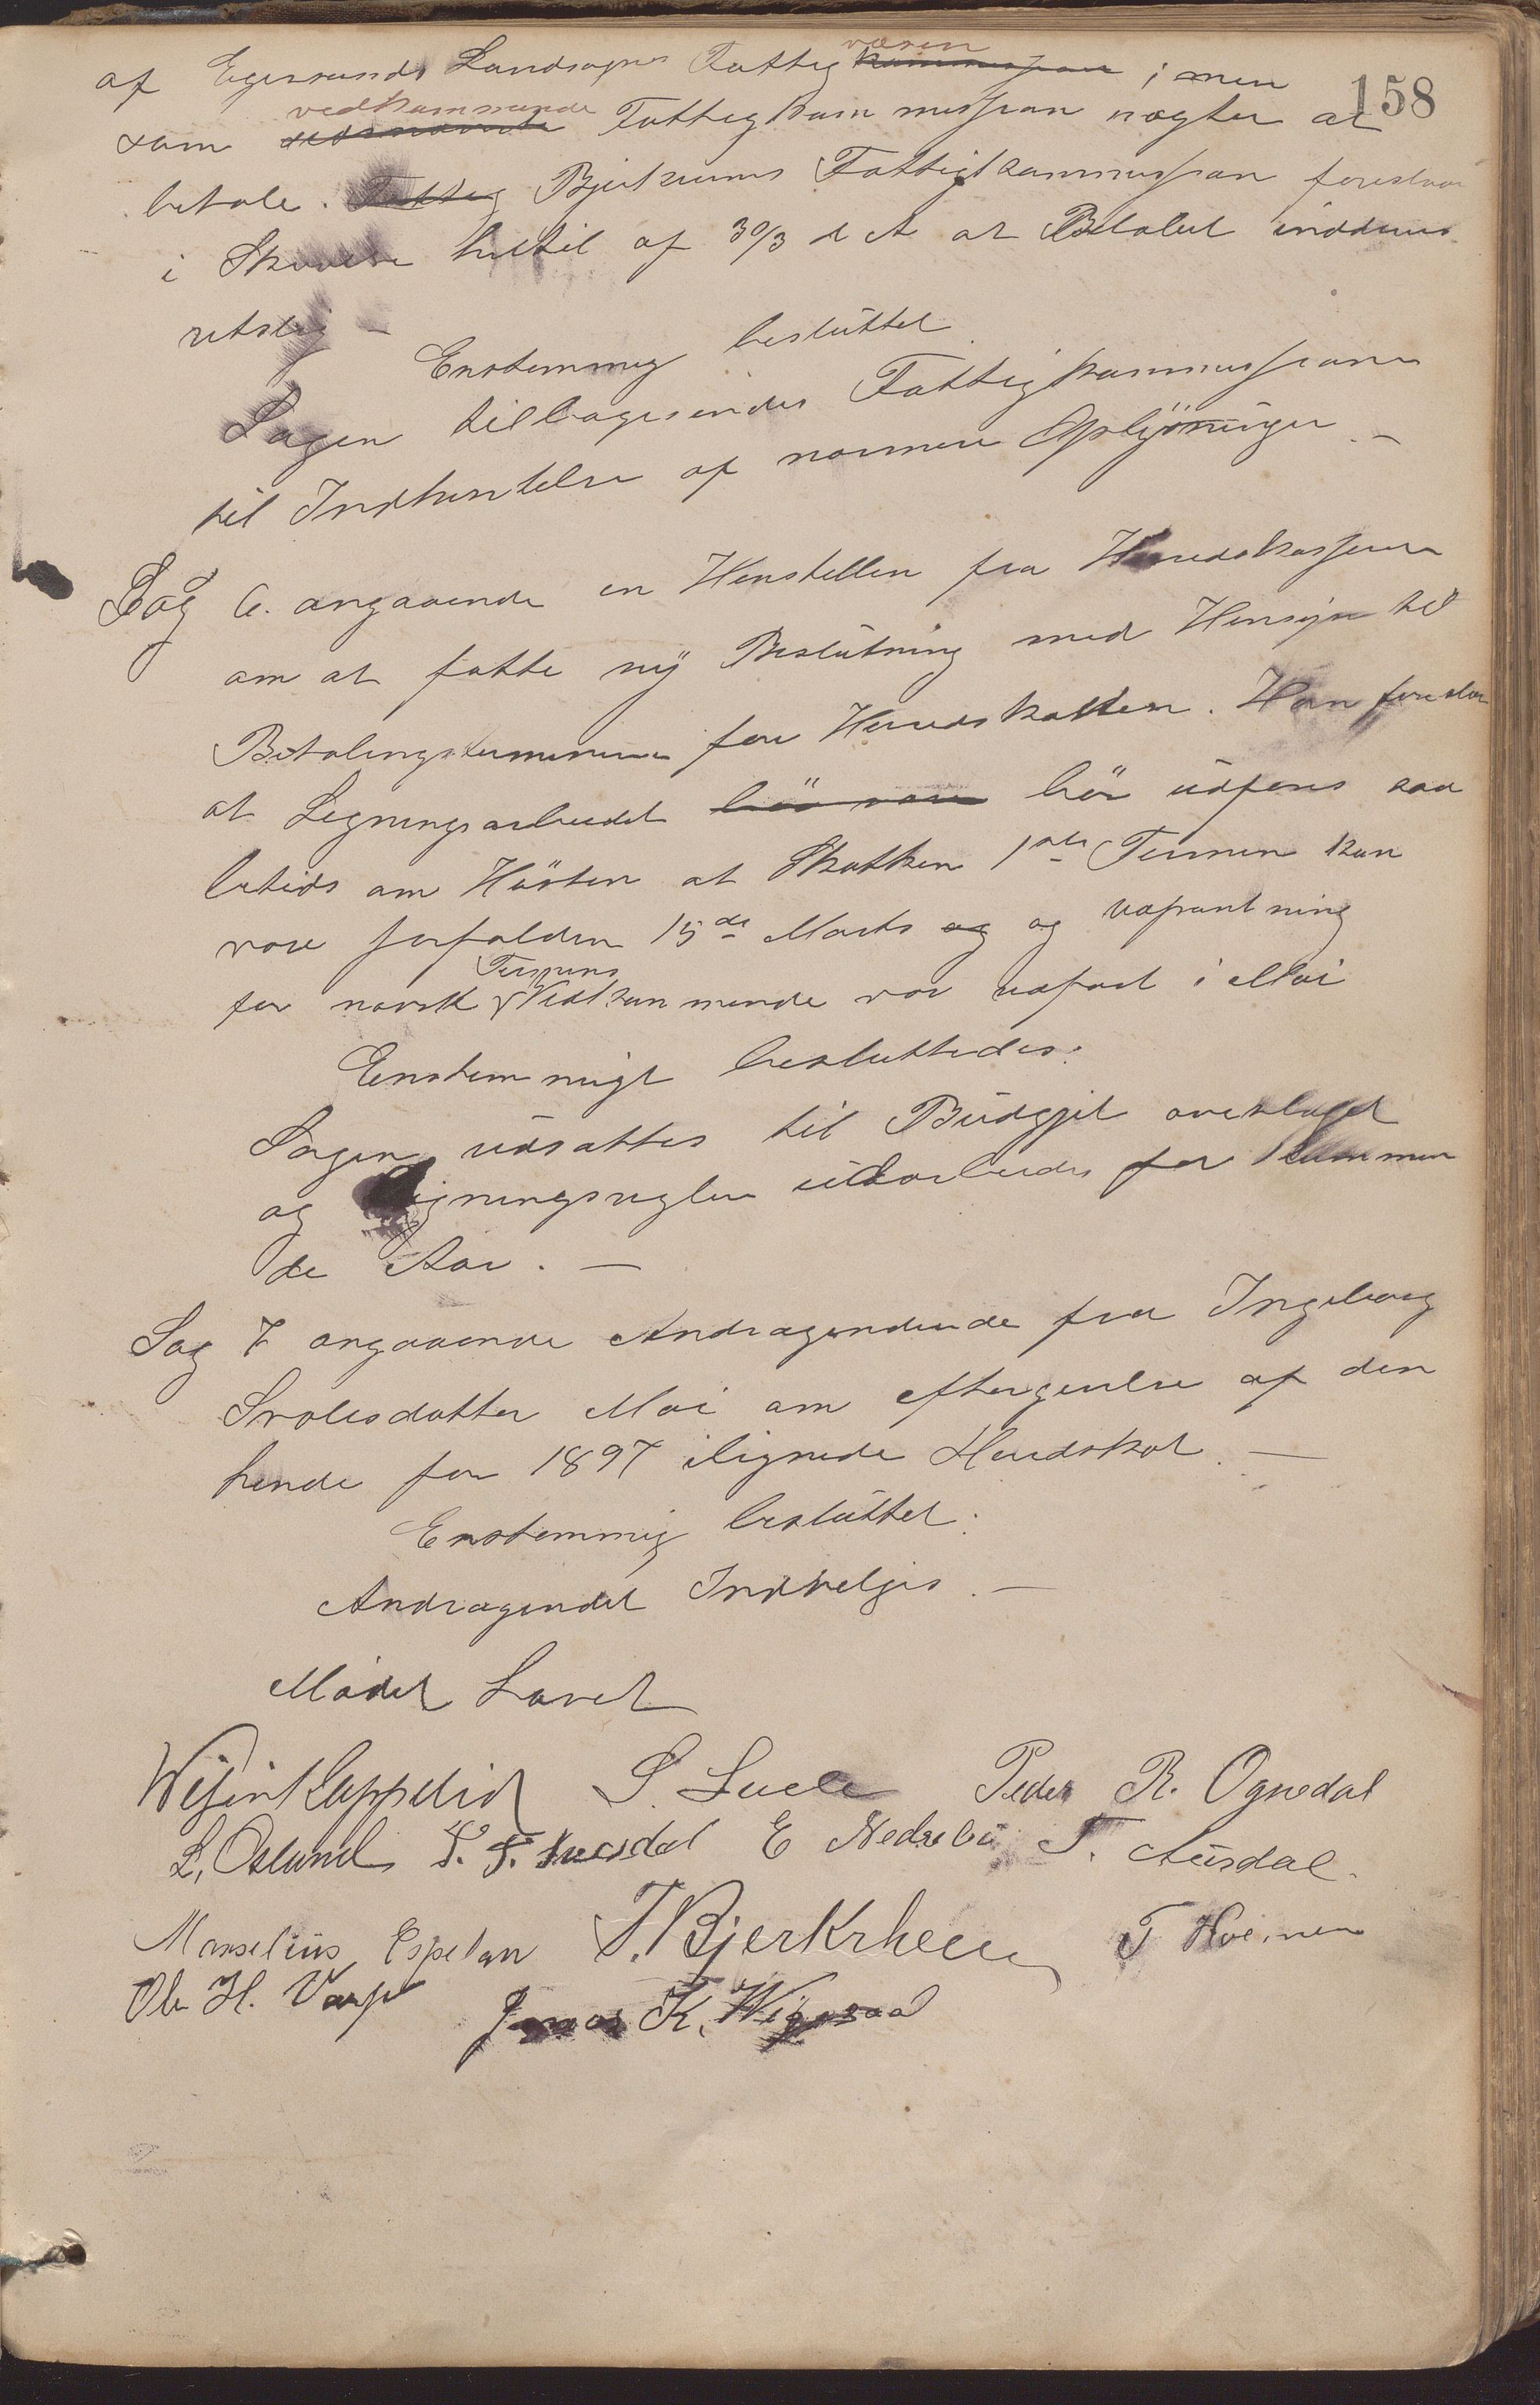 158
af Egersunds Landsogns Fattig væsen ; men
som vedkommende Fattigkommission nægter at
betale. Bjerkreims Fattigkommission foreslaar
i Skrivelse hertil af 30/3 d A at Beløbet inddrives
retslig –
Enstemmig besluttet
Sagen tilbagesendes Fattigkommissionen
til Indhentelse af nærmere Oplysninger. –
Sag 6. angaaende en Henstillen fra Herredskasseren
om at fatte ny Beslutning med Hensyn til
Betalingsterminen for Herredskatten. Han foreslaar
at Ligningsarbeidet bör være bör udføres saa
betids om Hösten at Skatten 1ste Termin kan
være forfalden 15de Marts og og Udpantning
for nævnte Termins Vedkommende være udført i Mai
Enstemmigt besluttedes:
Sagen udsættes til Büdgjet overslaget
og Ligningsregler udarbeides for kommen
de Aar. –
Sag 7 angaaende Andragendende fra Ingeborg
Svalesdatter Moi om eftergivelse af den
hende for 1897 ilignede Herredskat. –
Enstemmig besluttet:
Andragendet Indvelges. –
Mødet Hævet
S. Svela Peder R. Ognedal
L. Oslund E Nedrebö T. Aüsdal.
Manselius Espelan T. Bjerkrheim
Ole H. Vasp Jonas K. Wigesaa